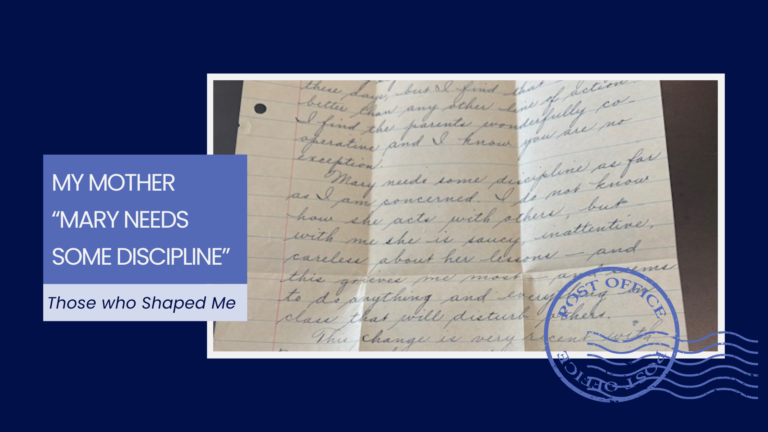 MY MOTHER
“MARY NEEDS
SOME DISCIPLINE”
Those who Shaped Me
these days, but I find that
better than any other line of action.
I find the parents wonderfully co-
operative and I know you are no
exception.
Mary needs some discipline as far
as I am concerned. I do not know
how she acts with others, but
with me she is saucy, inattentive,
careless about her lessons — and
this grieves me most — and
to do anything and
class that will disturb
This change is very recent with
POST OFFICE
POST OFFICE
POST OFFICE